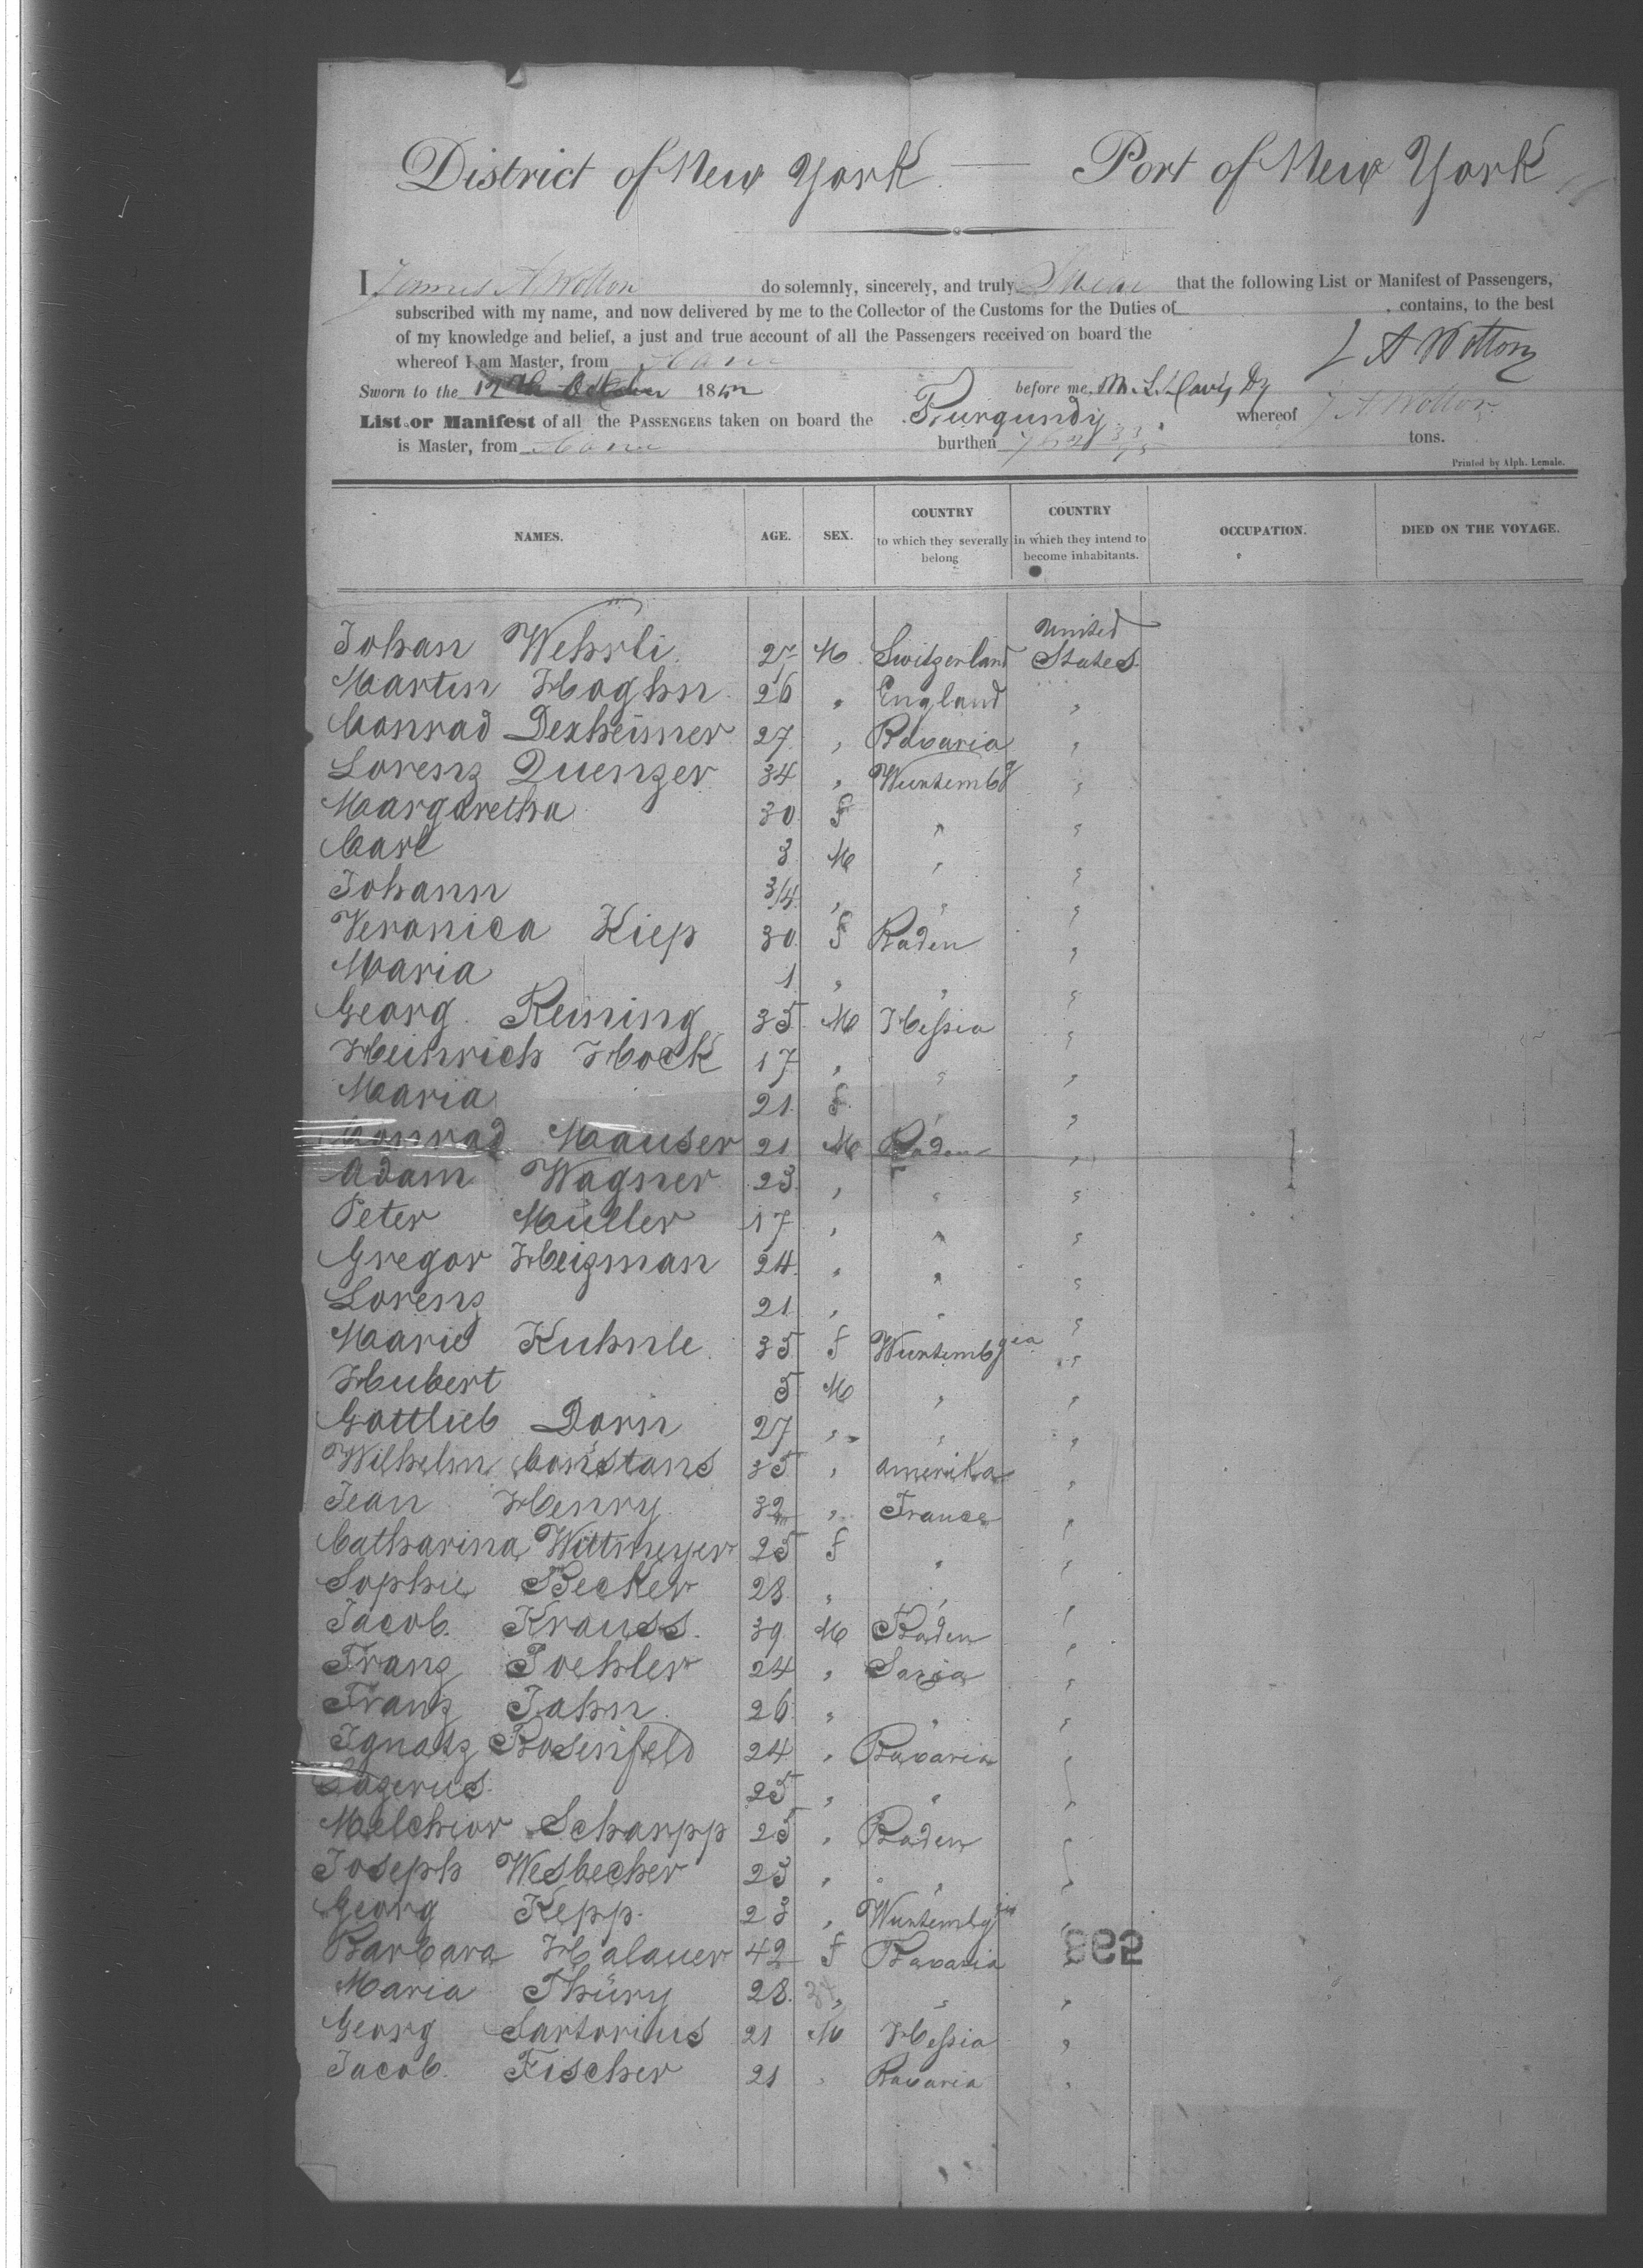 District of New York — Port of New York
I James A Wotton do solemnly, sincerely, and truly Swear that the following List or Manifest of Passengers,
subscribed with my name, and now delivered by me to the Collector of the Customs for the Duties of , contains, to the best
of my knowledge and belief, a just and true account of all the Passengers received on board the
whereof I am Master, from Havre J A Wotton
Sworn to the 12th October 18 before me, M. L. Davis Dy
List or Manifest of all the PASSENGERS taken on board the Burgundy whereof J A Wotton
is Master, from Havre burthen tons.
Printed by Alph. Lemale.
NAMES. AGE. SEX. COUNTRY to which they severally belong COUNTRY in which they intend to become inhabitants. OCCUPATION. DIED ON THE VOYAGE.
Johan Wehrli 27 M Switzerland United States
Martin Hoghn 26 " England "
Conrad Dexheimer 27 " Bavaria "
Lorenz Quenzer 34 " Wurtembg "
Margaretha 30 F " "
Carl 3 M " "
Johann 3/4 " " "
Veronica Kiep 30 F Baden "
Maria 1 " " "
Georg Reining 35 M Hessia "
Heinrich Hock 17 " " "
Maria 21 F " "
Conrad Mauser 21 M Baden "
Adam Wagner 23 " " "
Peter Müller 17 " " "
Gregor Heizman 24 " " "
Lorenz 21 " " "
Marie Kuhnle 35 F Wurtembgia "
Hubert 5 M " "
Gottlieb Dorn 27 " " "
Wilhelm Constans 35 " amerika "
Jean Henry 32 " France "
Catharina Wittmeyer 25 F " "
Sophie Becker 28 " " "
Jacob Krauss 39 M Baden "
Franz Poehler 24 " Saxia "
Franz Jahn 26 " " "
Ignatz Rosenfeld 24 " Bavaria "
Lazerus 25 " " "
Melchior Scharpp 25 " Baden "
Joseph Wesbecher 23 " " "
Georg Kepp 23 " Wurtembgia "
Barbara Halauer 42 F Bavaria "
Maria Thüry 28 " " "
Georg Sartorius 21 M Hessia "
Jacob Fischer 21 " Bavaria "